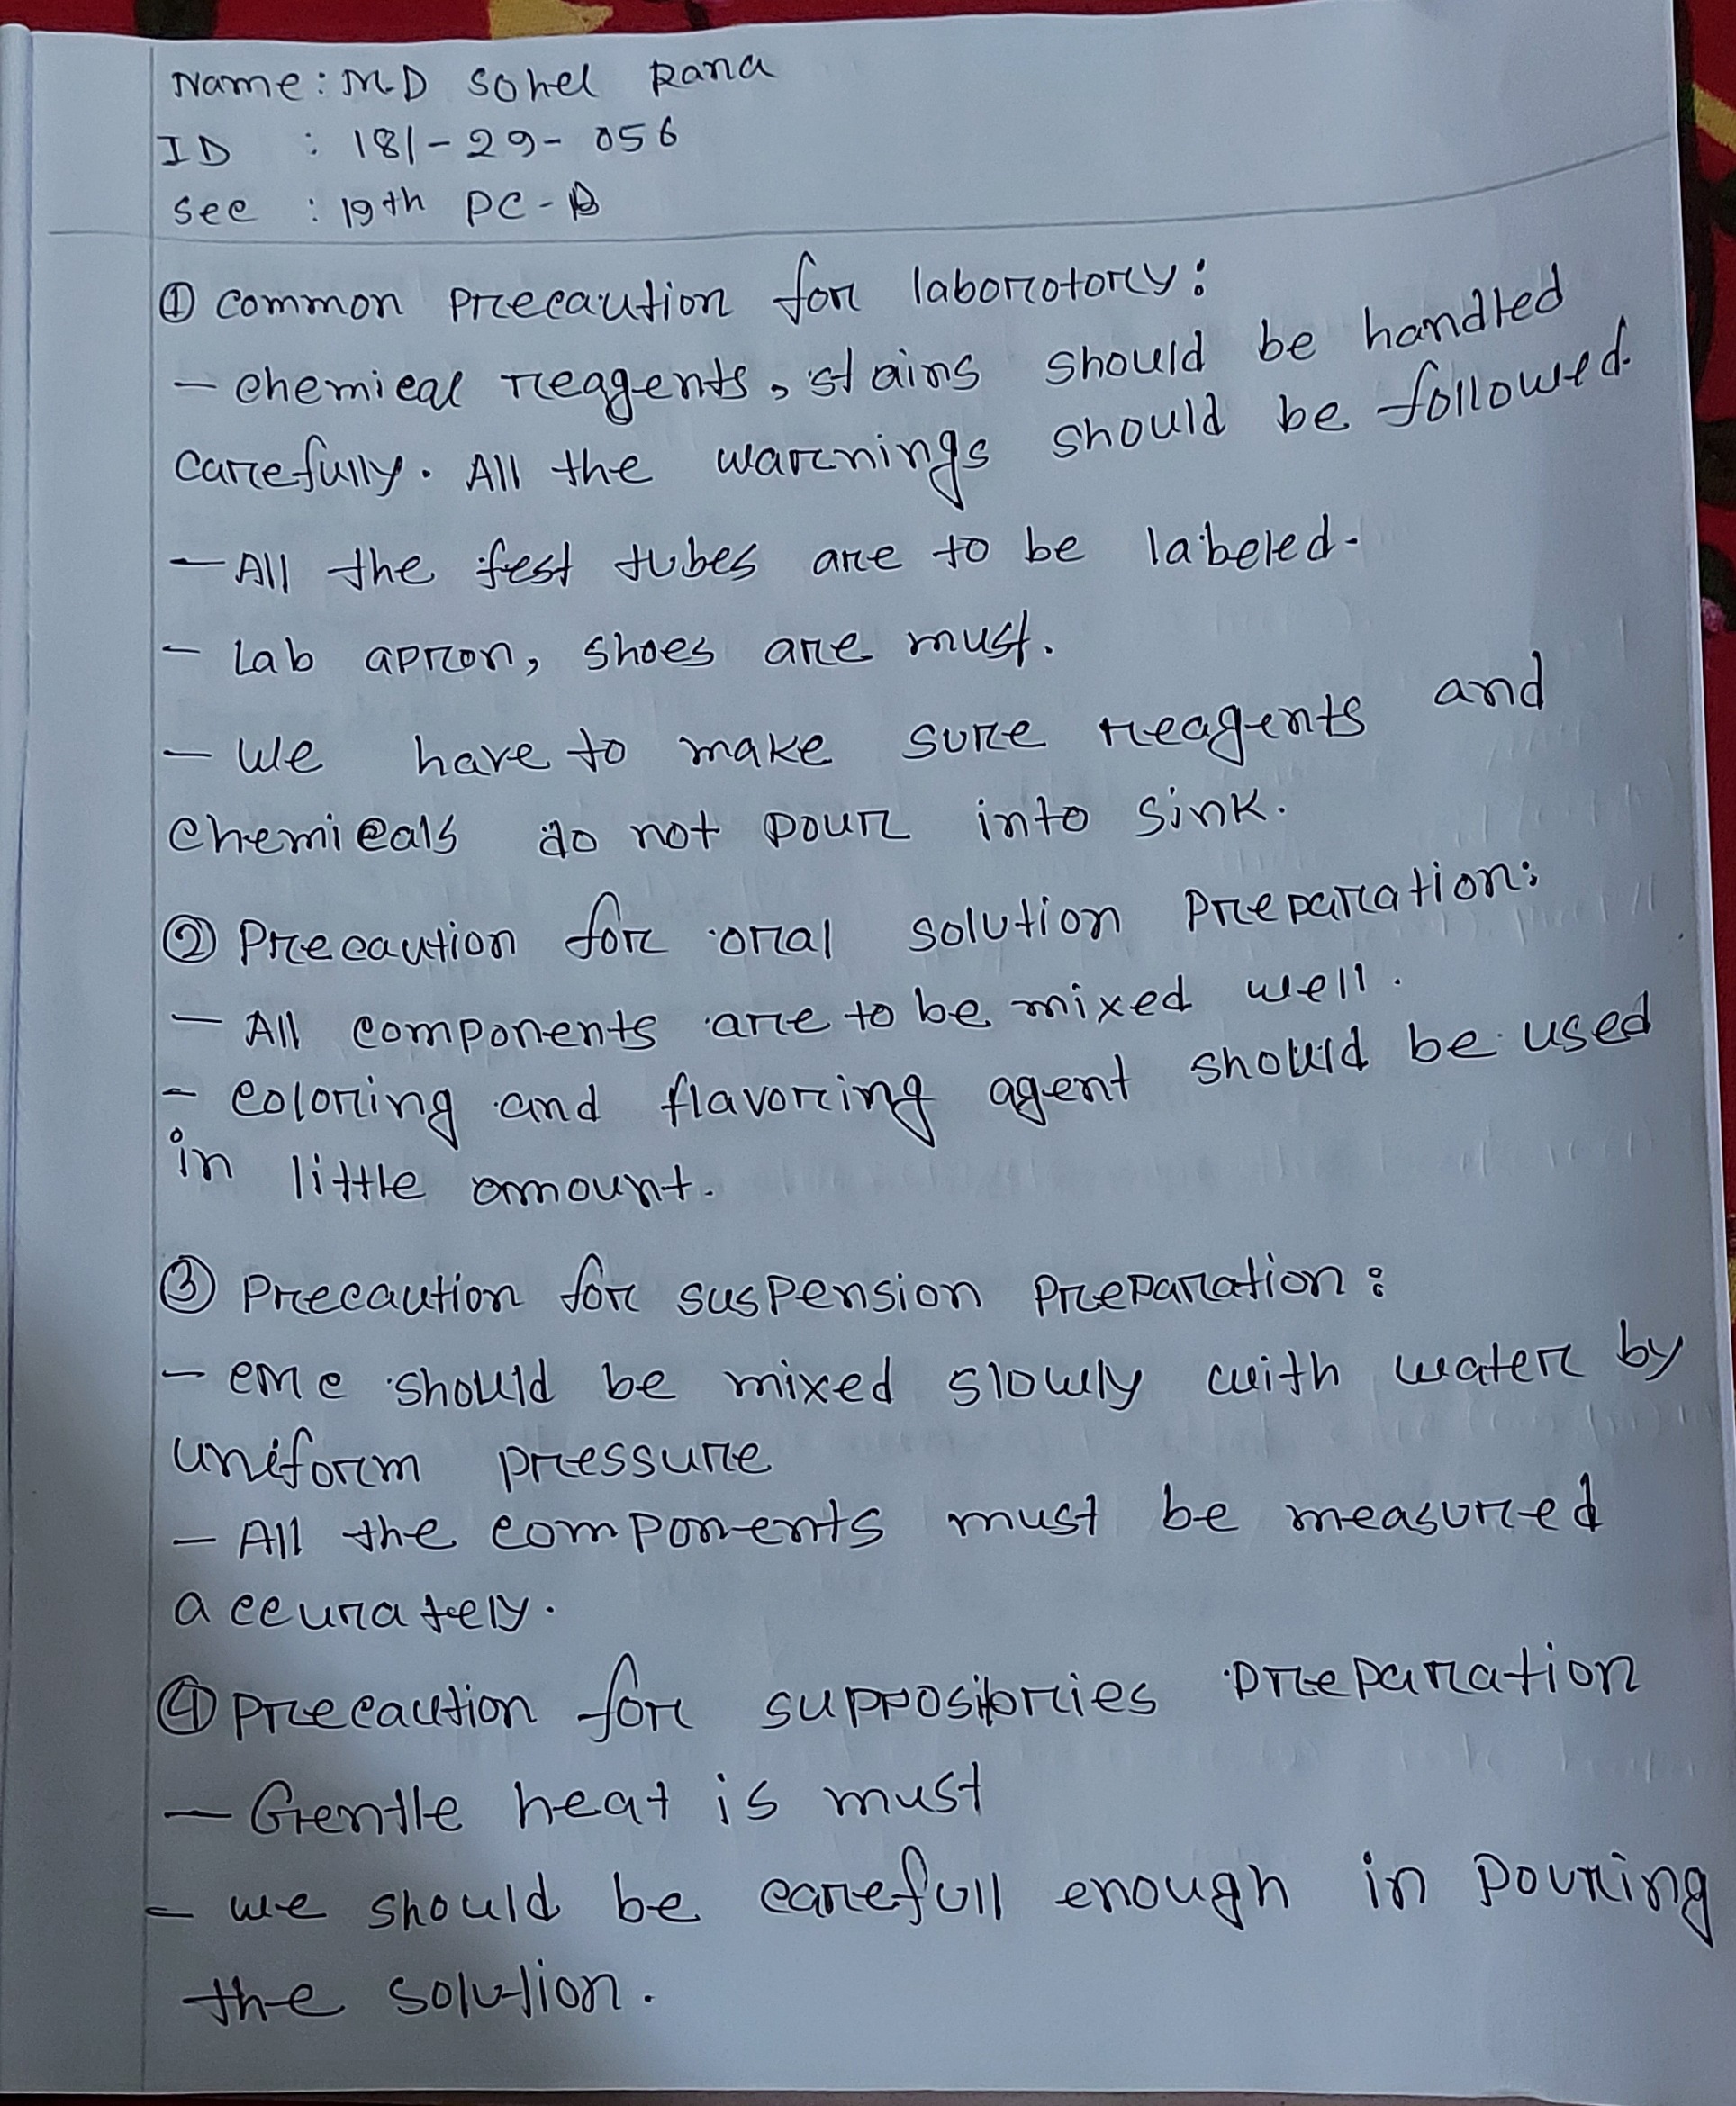 Name: MD Sohel Rana
ID : 181-29-056
Sec : 19th PC-B
① Common Precaution for laborotory:
- Chemical reagents, stains should be handled
carefully. All the warnings should be followed.
- All the test tubes are to be labeled.
- Lab apron, shoes are must.
- We have to make sure reagents and
Chemicals do not pour into sink.
② Precaution for oral solution Preparation:
- All components are to be mixed well.
- Coloring and flavoring agent should be used
in little amount.
③ Precaution for suspension Preparation:
- CMC should be mixed slowly with water by
uniform pressure
- All the components must be measured
accurately.
④ Precaution for suppositories preparation
- Gentle heat is must
- we should be carefull enough in pouring
the solution.